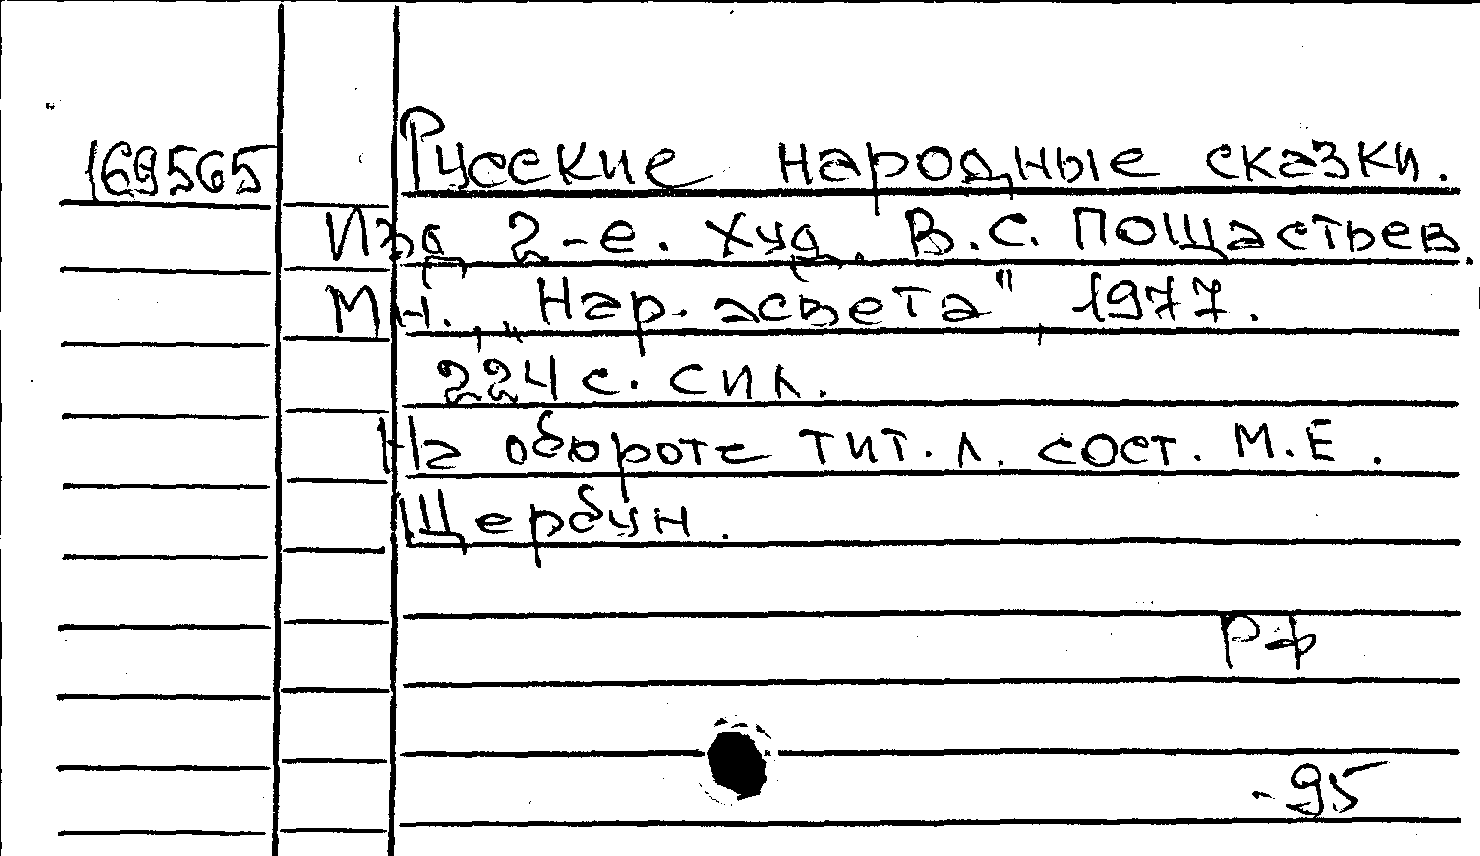 169565 Русские народные сказки.
Изд 2-е. Худ. В.С. Пощастьев.
Мн. „Нар. асвета", 1977.
224 с. с ил.
На обороте тит. л. сост. М.Е.
Щербун.
Рф
-95